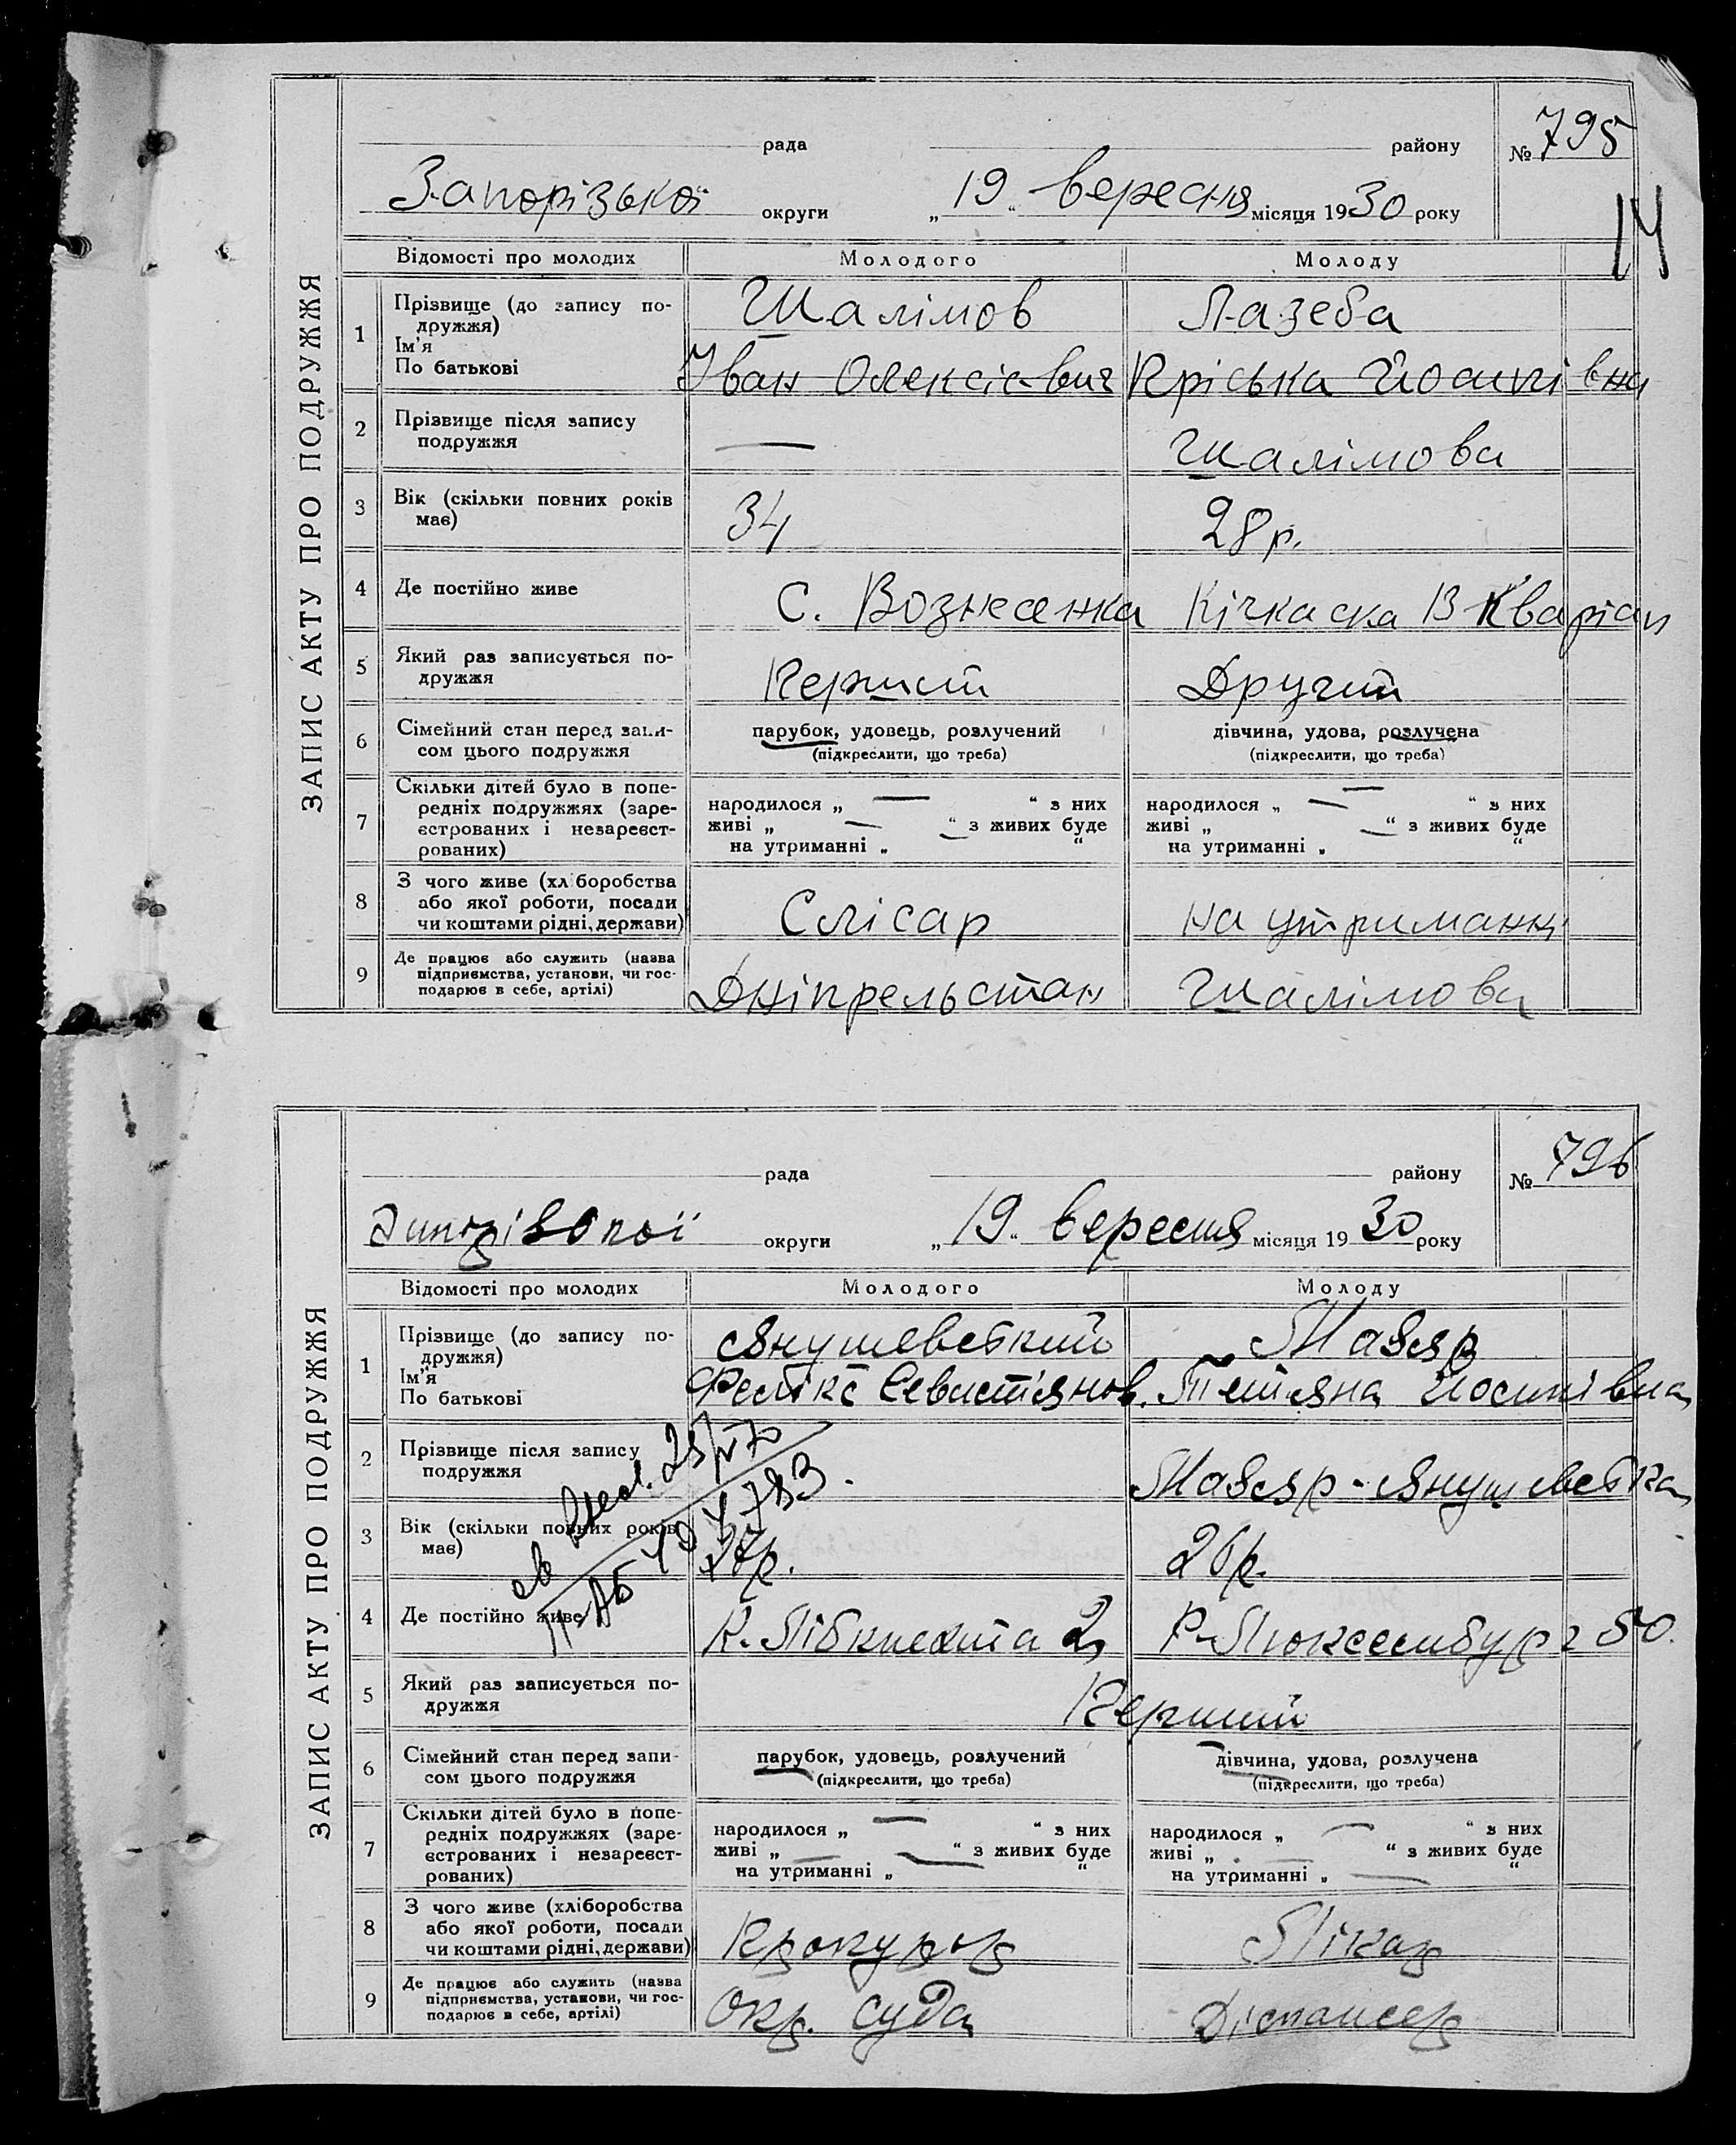 ЗАПИС АКТУ ПРО ПОДРУЖЖЯ
рада району № 795
Запорізької округи „19“ вересня місяця 1930 року
14
Відомості про молодих Молодого Молоду
1 Прізвище (до запису по-
дружжя)
Ім'я
По батькові
Шалімов Лазеба
Іван Олексієвич Пріська Йосипівна
2 Прізвище після запису
подружжя
— Шалімова
3 Вік (скільки повних років
має)
34 28 р.
4 Де постійно живе С. Вознесенка Кічкаска 13 Кваріал
5 Який раз записується по-
дружжя
Перший Другий
6 Сімейний стан перед запи-
сом цього подружжя
парубок, удовець, розлучений дівчина, удова, розлучена
(підкреслити, що треба) (підкреслити, що треба)
7 Скільки дітей було в попе-
редніх подружжях (заре-
єстрованих і незареєст-
рованих)
народилося „ — “ з них народилося „ — “ з них
живі „ — “ з живих буде живі „ — “ з живих буде
на утриманні „ “ на утриманні „ “
8 З чого живе (хліборобства
або якої роботи, посади
чи коштами рідні, держави)
Слісар на утриманні
9 Де працює або служить (назва
підприємства, установи, чи гос-
подарює в себе, артілі)
Дніпрельстан Шалімова
ЗАПИС АКТУ ПРО ПОДРУЖЖЯ
рада району № 796
округи „19“ вересня місяця 1930 року
Відомості про молодих Молодого Молоду
1 Прізвище (до запису по-
дружжя)
Ім'я
По батькові
Янушевський Маляр
Фелікс Севастіянов. Тетяна Йосипівна
2 Прізвище після запису
подружжя
Маляр-Янушевська
3 Вік (скільки повних років
має)
27р. 26р.
4 Де постійно живе К. Лібкнехта 2 Р-Люксембург 50.
5 Який раз записується по-
дружжя
Перший
6 Сімейний стан перед запи-
сом цього подружжя
парубок, удовець, розлучений дівчина, удова, розлучена
(підкреслити, що треба) (підкреслити, що треба)
7 Скільки дітей було в попе-
редніх подружжях (заре-
єстрованих і незареєст-
рованих)
народилося „ — “ з них народилося „ — “ з них
живі „ — “ з живих буде живі „ — “ з живих буде
на утриманні „ “ на утриманні „ — “
8 З чого живе (хліборобства
або якої роботи, посади
чи коштами рідні, держави)
Прокурор Лікар
9 Де працює або служить (назва
підприємства, установи, чи гос-
подарює в себе, артілі)
Окр. суда Діспансер